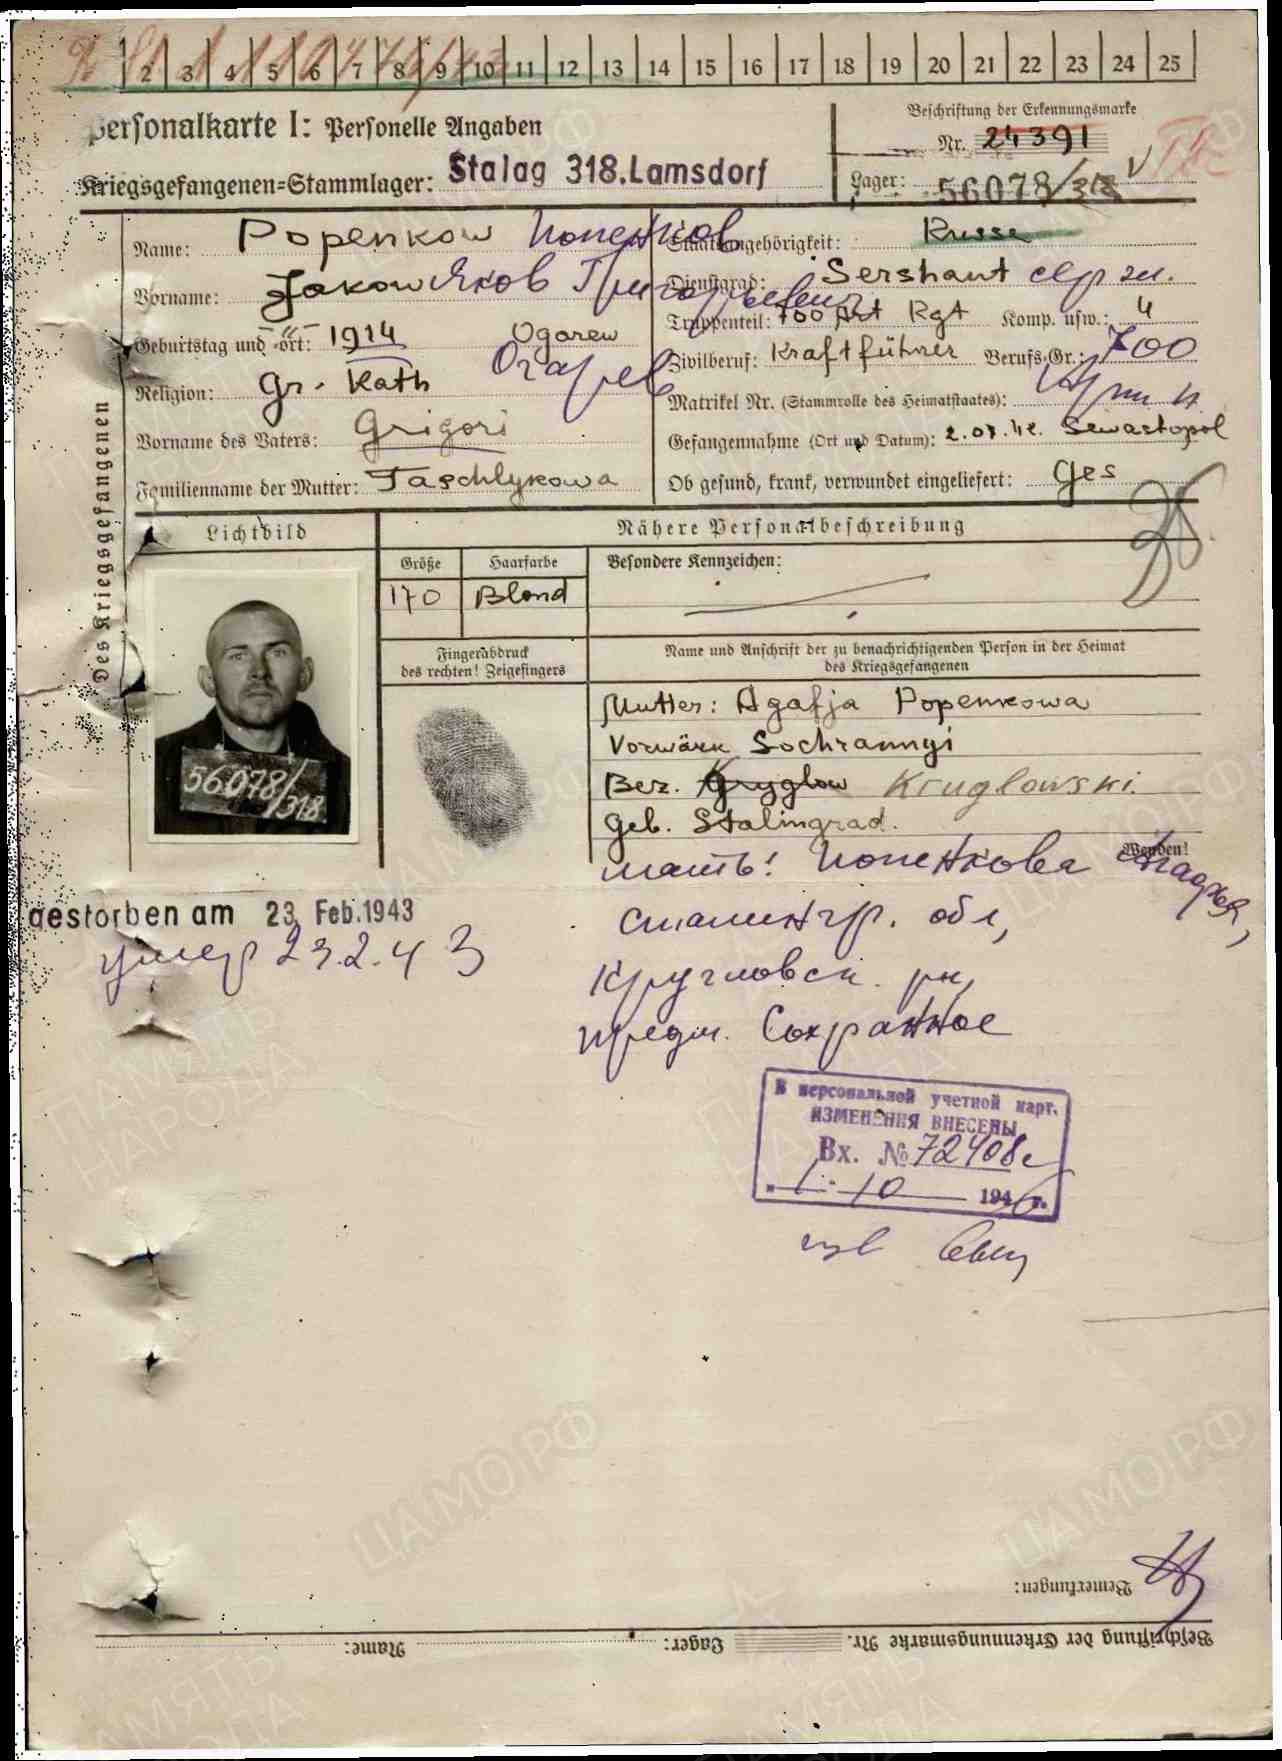 2 3 4 5 6 7 8 9 10 11 12 13 14 15 16 17 18 19 20 21 22 23 24 25
Personalkarte I: Personelle Angaben
Beschriftung der Erkennungsmarke
Nr. 24391
Kriegsgefangenen=Stammlager: Stalag 318.Lamsdorf
Lager: 56078/318 V
Des Kriegsgefangenen
Name: Popenkow Попенков
Vorname: Jakow Яков Григорьевич
Geburtstag und =ort: 1914 Ogarew
Огарев
Religion: Gr. Kath
Vorname des Vaters: Grigori
Familienname der Mutter: Taschlykowa
Staatsangehörigkeit: Russe
Dienstgrad: Sershant серж.
Truppenteil: 700 Art Rgt Komp. usw.: 4
Zivilberuf: Kraftführer Berufs=Gr.: 700
Matrikel Nr. (Stammrolle des Heimatstaates):
Gefangennahme (Ort und Datum): 2.07.42. Sewastopol
Ob gesund, krank, verwundet eingeliefert: Ges
Lichtbild
Nähere Personalbeschreibung
Größe Haarfarbe Besondere Kennzeichen:
170 Blond
56078/318
Fingerabdruck
des rechten! Zeigefingers
Name und Anschrift der zu benachrichtigenden Person in der Heimat
des Kriegsgefangenen
Mutter: Agafja Popenkowa
Vorwärk Sochrannyi
Bez. Gryglow Kruglowski.
Geb. Stalingrad.
Wenden!
мать: Попенкова Агафья,
сталингр. обл,
Кругловск. рн,
предм. Сохранное
gestorben am 23. Feb. 1943
умер 23.2.43
В персональной учетной карт.
ИЗМЕНЕНИЯ ВНЕСЕНЫ
Вх. № 72408с
"1" 10 1946 г.
Bemerkungen:
Beschriftung der Erkennungsmarke Nr. Lager: Name:
ПАМЯТЬ
НАРОДА
ЦАМО.РФ